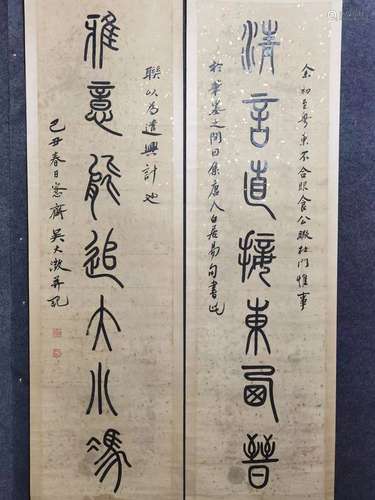 余初至粵東不合食公暇杜門惟事
清言直接東西晉
於筆墨之間唐人白居易句書此
聯以為遣興計也
雅意能追大小馮
己丑春日愙齋吳大澂并記